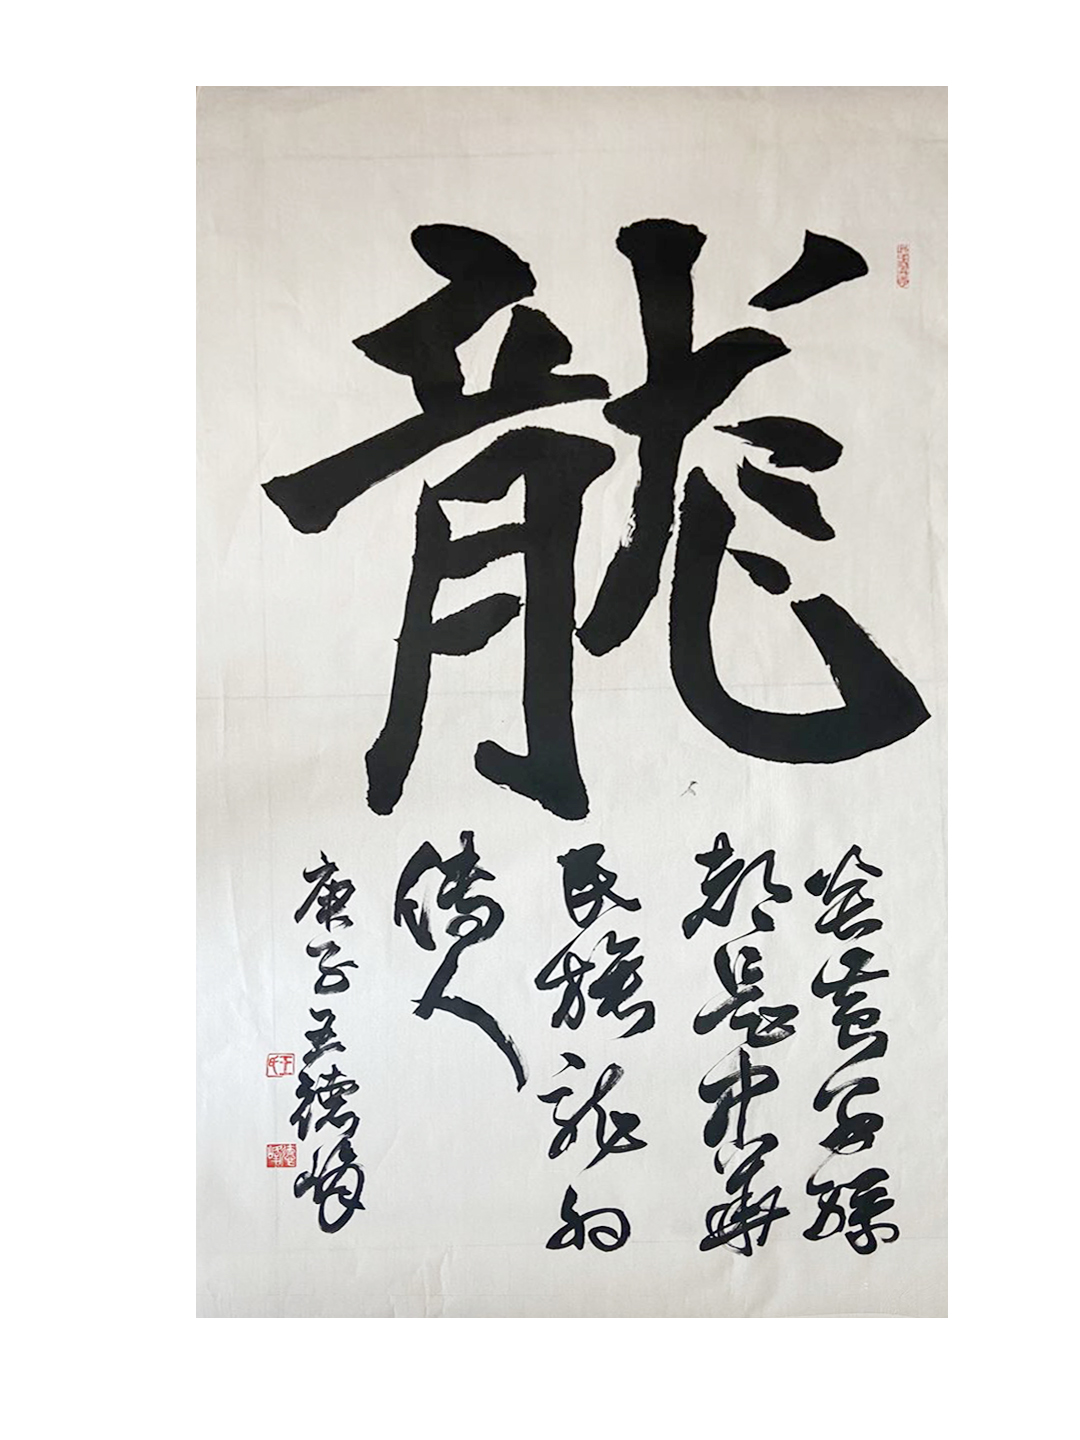 龍
炎黄子孫
都是中華
民族龍的
傳人
庚子王德峰
王氏